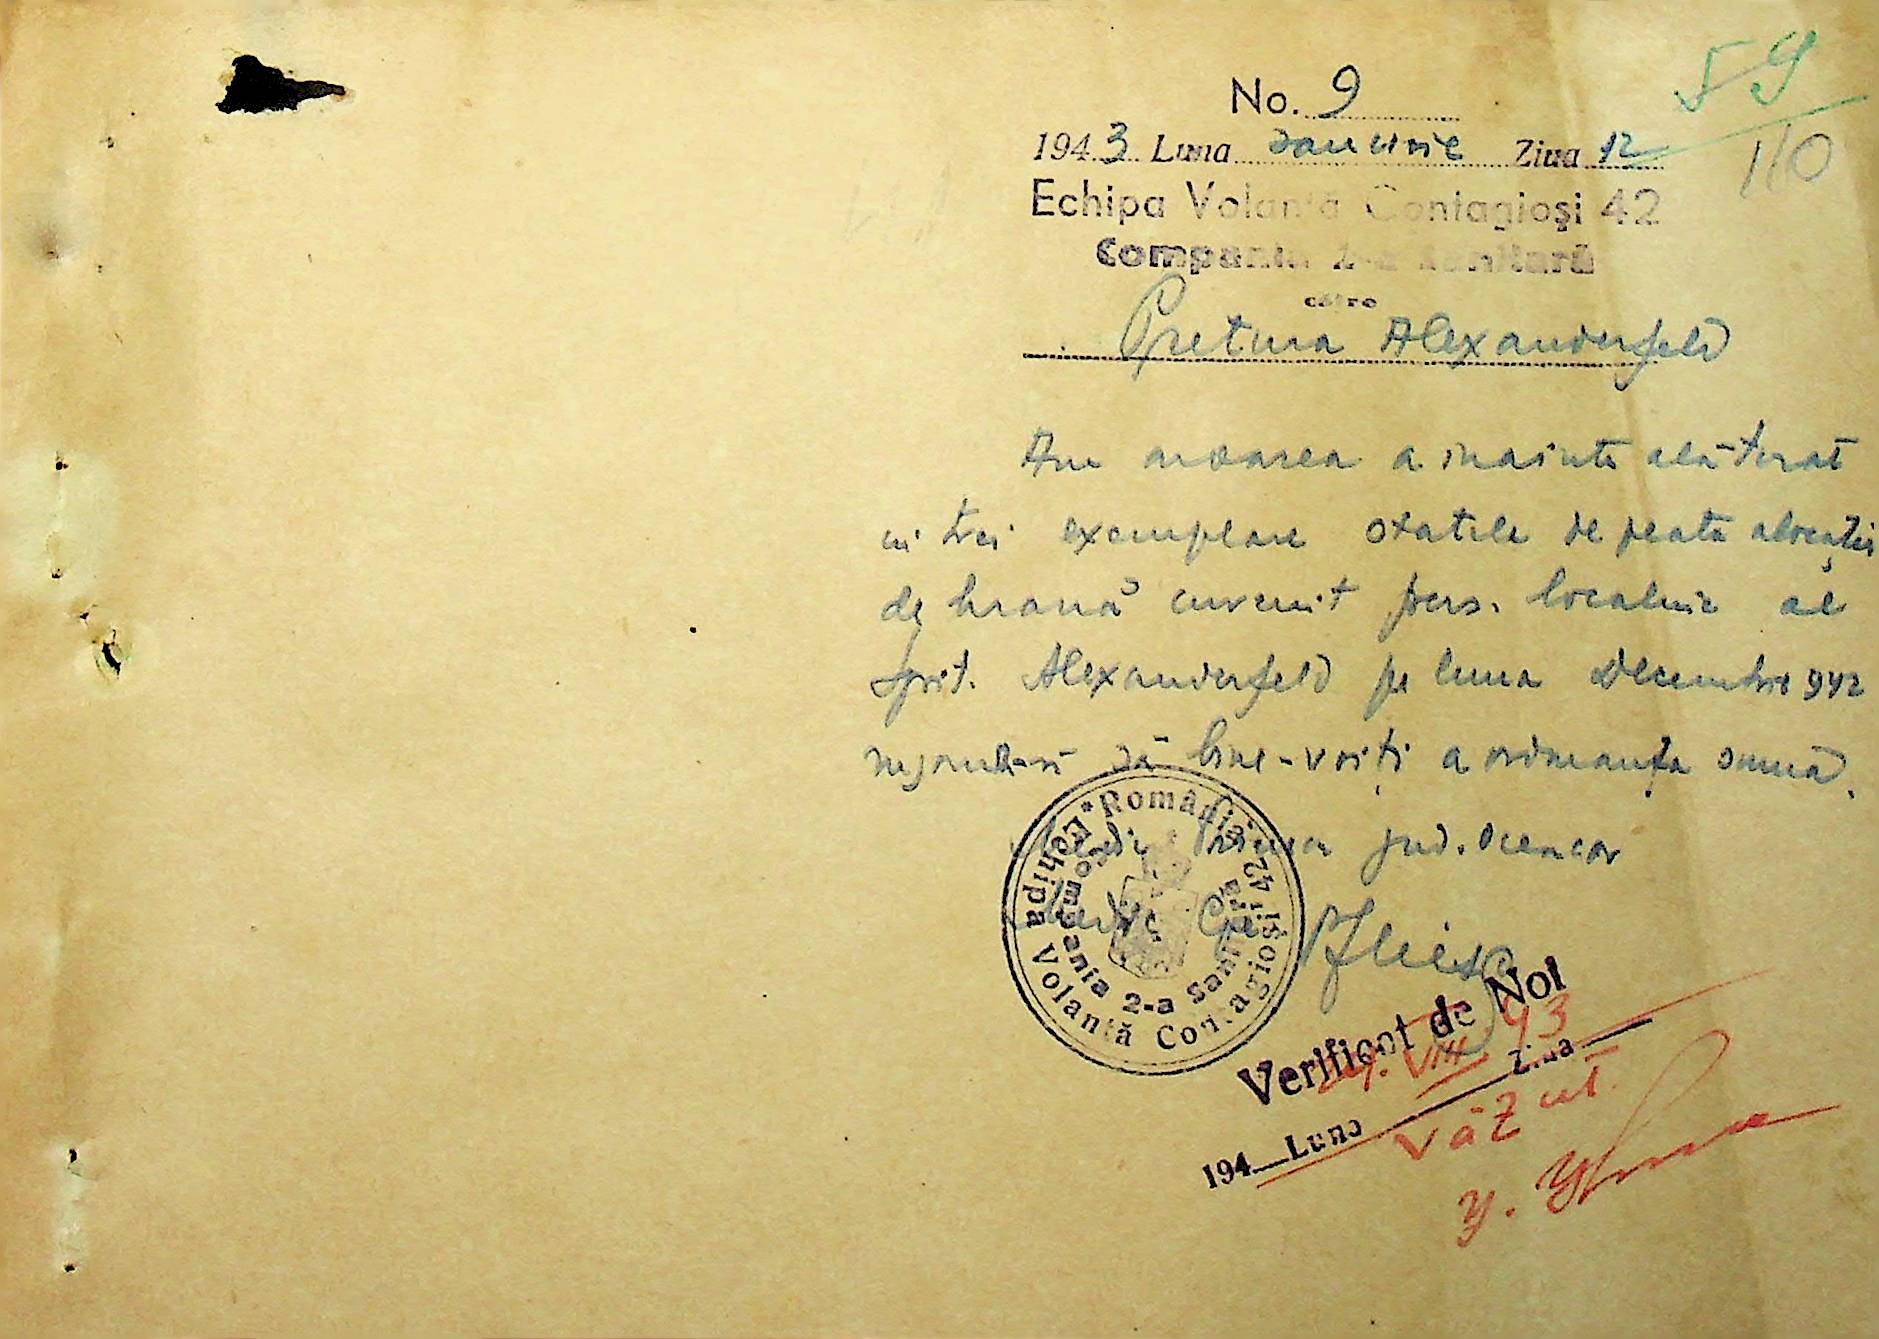 59
110
No. 9
1943 Luna Ianuarie Ziua 12
Echipa Volantă Contagioşi 42
Compania 2-a Sanitară
către
Pretura Alexanderfeld
Am onoarea a inainta alăturat
in trei exemplare statele de plată alocaţiei
de hrană cuvenit pers. localnic al
spit. Alexanderfeld pe luna Decembrie 942
să bine-voiţi a ordonanţa suma.
jud.
* România *
Echipa Volantă Contagioşi 42
Compania 2-a Sanitară
Verificat de Noi
VIII 43
194 Luna Ziua
Văzut